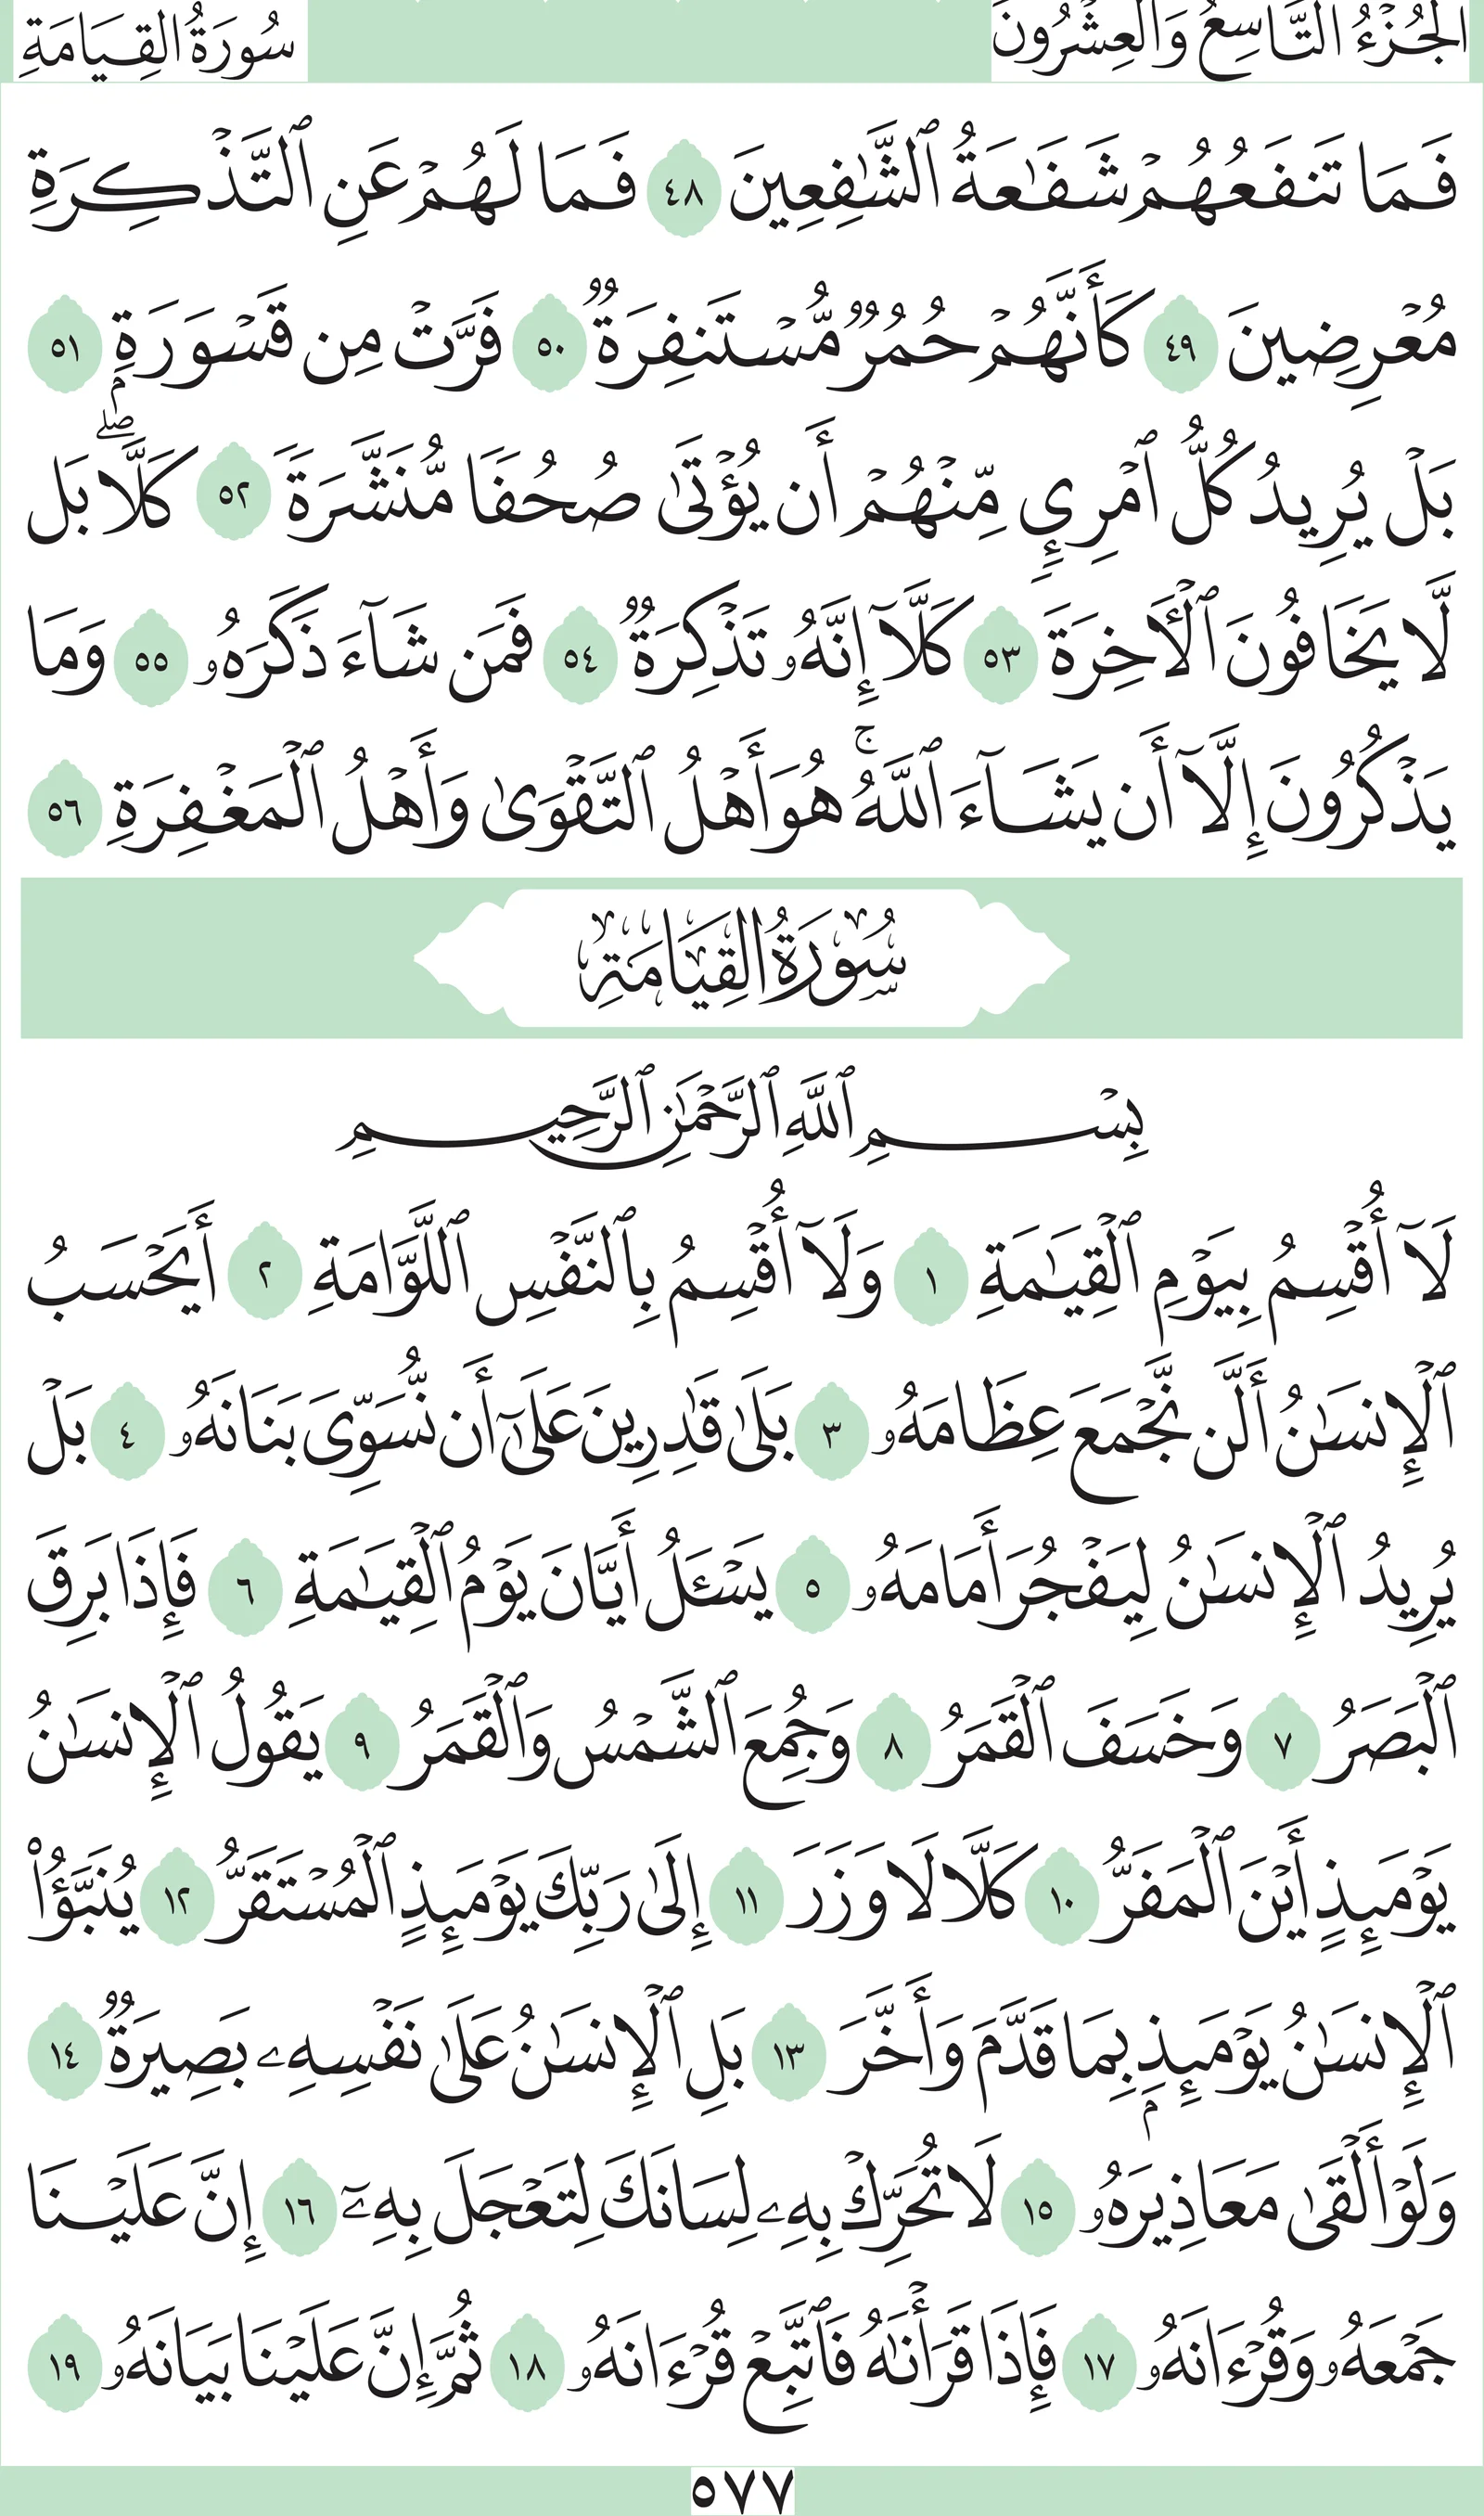 الجُزْءُ التَّاسِعُ وَالعِشْرُونَ
سُورَةُ القِيَامَةِ
فَمَا تَنفَعُهُمۡ شَفَٰعَةُ ٱلشَّٰفِعِينَ ٤٨ فَمَا لَهُمۡ عَنِ ٱلتَّذۡكِرَةِ
مُعۡرِضِينَ ٤٩ كَأَنَّهُمۡ حُمُرٞ مُّسۡتَنفِرَةٞ ٥٠ فَرَّتۡ مِن قَسۡوَرَةِۭ ٥١
بَلۡ يُرِيدُ كُلُّ ٱمۡرِيٕٖ مِّنۡهُمۡ أَن يُؤۡتَىٰ صُحُفٗا مُّنَشَّرَةٗ ٥٢ كَلَّاۖ بَل
لَّا يَخَافُونَ ٱلۡأٓخِرَةَ ٥٣ كَلَّآ إِنَّهُۥ تَذۡكِرَةٞ ٥٤ فَمَن شَآءَ ذَكَرَهُۥ ٥٥ وَمَا
يَذۡكُرُونَ إِلَّآ أَن يَشَآءَ ٱللَّهُۚ هُوَ أَهۡلُ ٱلتَّقۡوَىٰ وَأَهۡلُ ٱلۡمَغۡفِرَةِ ٥٦
سُورَةُ القِيَامَةِ
بِسۡمِ ٱللَّهِ ٱلرَّحۡمَٰنِ ٱلرَّحِيمِ
لَآ أُقۡسِمُ بِيَوۡمِ ٱلۡقِيَٰمَةِ ١ وَلَآ أُقۡسِمُ بِٱلنَّفۡسِ ٱللَّوَّامَةِ ٢ أَيَحۡسَبُ
ٱلۡإِنسَٰنُ أَلَّن نَّجۡمَعَ عِظَامَهُۥ ٣ بَلَىٰ قَٰدِرِينَ عَلَىٰٓ أَن نُّسَوِّيَ بَنَانَهُۥ ٤ بَلۡ
يُرِيدُ ٱلۡإِنسَٰنُ لِيَفۡجُرَ أَمَامَهُۥ ٥ يَسۡـَٔلُ أَيَّانَ يَوۡمُ ٱلۡقِيَٰمَةِ ٦ فَإِذَا بَرِقَ
ٱلۡبَصَرُ ٧ وَخَسَفَ ٱلۡقَمَرُ ٨ وَجُمِعَ ٱلشَّمۡسُ وَٱلۡقَمَرُ ٩ يَقُولُ ٱلۡإِنسَٰنُ
يَوۡمَئِذٍ أَيۡنَ ٱلۡمَفَرُّ ١٠ كَلَّا لَا وَزَرَ ١١ إِلَىٰ رَبِّكَ يَوۡمَئِذٍ ٱلۡمُسۡتَقَرُّ ١٢ يُنَبَّؤُاْ
ٱلۡإِنسَٰنُ يَوۡمَئِذِۭ بِمَا قَدَّمَ وَأَخَّرَ ١٣ بَلِ ٱلۡإِنسَٰنُ عَلَىٰ نَفۡسِهِۦ بَصِيرَةٞ ١٤
وَلَوۡ أَلۡقَىٰ مَعَاذِيرَهُۥ ١٥ لَا تُحَرِّكۡ بِهِۦ لِسَانَكَ لِتَعۡجَلَ بِهِۦٓ ١٦ إِنَّ عَلَيۡنَا
جَمۡعَهُۥ وَقُرۡءَانَهُۥ ١٧ فَإِذَا قَرَأۡنَٰهُ فَٱتَّبِعۡ قُرۡءَانَهُۥ ١٨ ثُمَّ إِنَّ عَلَيۡنَا بَيَانَهُۥ ١٩
٥٧٧